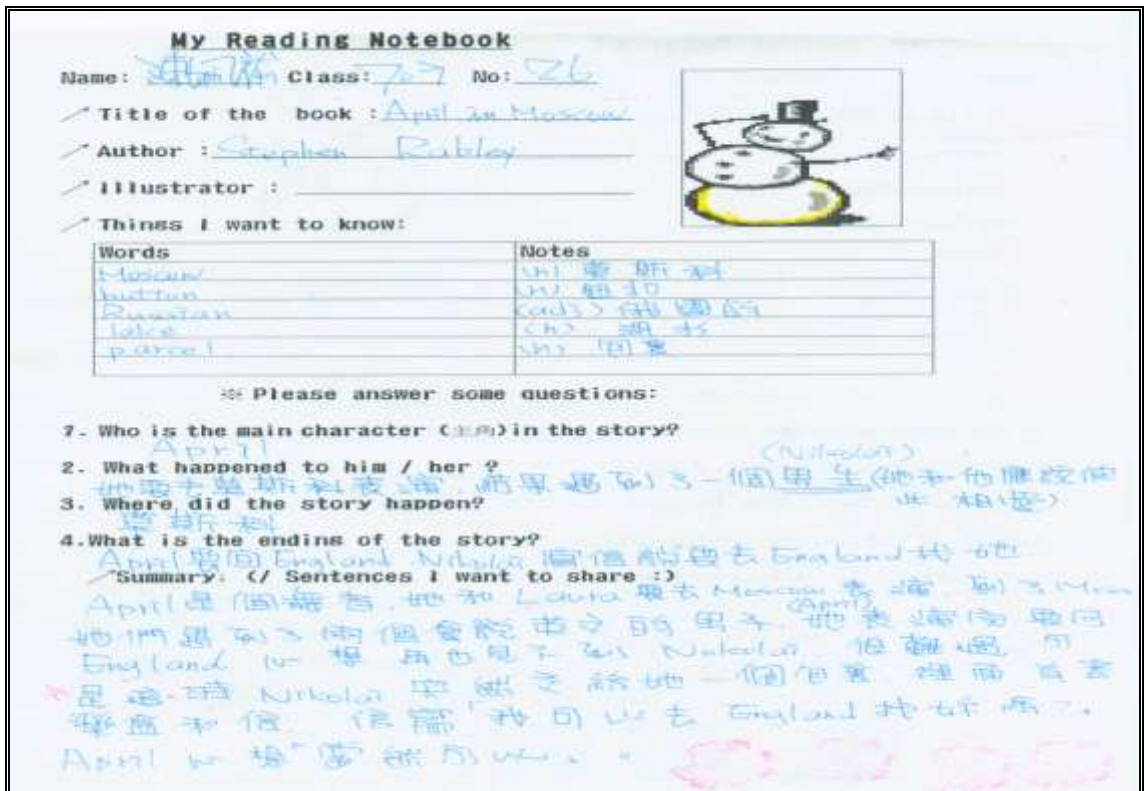 My Reading Notebook
Name: Class: 707 No: 26
Title of the book : April in Moscow
Author : Stephen Rabley
Illustrator :
Things I want to know:
Words Notes
Moscow (n) 莫斯科
button (n) 鈕扣
Russian (adj) 俄國的
lake (n) 湖水
parcel (n) 包裹
※ Please answer some questions:
1. Who is the main character (主角)in the story?
April
(Nikolai)
2. What happened to him / her ?
她要去莫斯科表演, 結果遇到了一個男生(她和他應該彼
此相愛)
3. Where did the story happen?
莫斯科
4.What is the ending of the story?
April要回England Nikolai寫信說要去England找她
Summary: (/ Sentences I want to share :)
April是個舞者, 她和Laura要去Moscow表演, 到了
她們遇到了兩個會說英文的男子, 她(April)表演後要回
England 心想再也見不到 Nikolai, 很難過, 可
是這時 Nikolai 突然交給她一個包裹 裡面有音
樂盒和信, 信寫「我可以去 England 找妳嗎?」
April 心想「當然可以」。